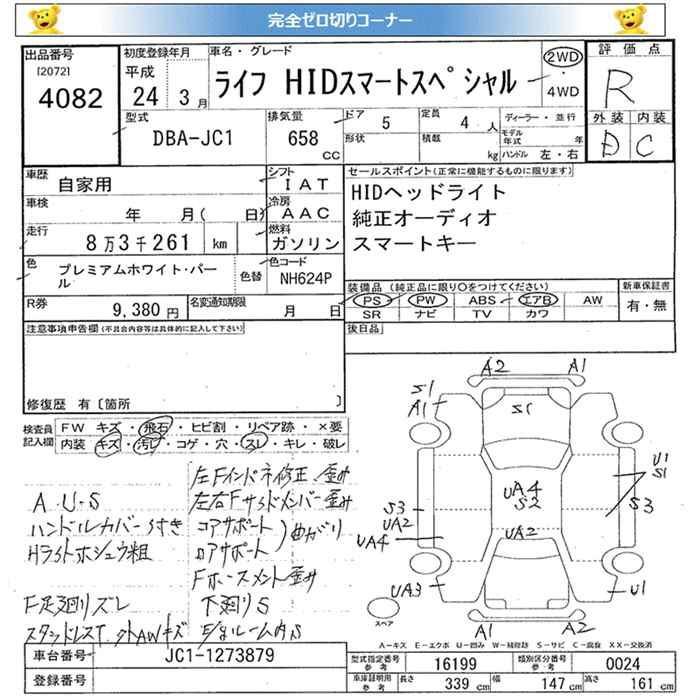 完全ゼロ切りコーナー
出品番号
[2072]
4082
初度登録年月
平成
24 3月
車名・グレード
ライフ HIDスマートスペシャル
2WD
・
4WD
評価点
R
外装 内装
D C
型式
DBA-JC1
排気量
658
CC
ドア
5
形状
定員
4 人
積載
kg
ディーラー・並行
モデル年式 年
ハンドル 左・右
車歴
自家用
シフト
IAT
車検
年 月( 日)
冷房
AAC
走行
8万3千261 km
燃料
ガソリン
色
プレミアムホワイト・パール
色替
色コード
NH624P
R券
9,380 円
名変通知期限
月 日
セールスポイント(正常に機能するものに限ります)
HIDヘッドライト
純正オーディオ
スマートキー
装備品 (純正品に限り○をつけてください)
PS PW ABS エアB AW
SR ナビ TV カワ
新車保証書
有・無
後日品
注意事項申告欄(不具合内容等は具体的に記入して下さい)
修復歴 有〔箇所 〕
検査員
記入欄
FW キズ・飛石・ヒビ割・リペア跡・×要
内装 キズ・汚レ・コゲ・穴・スレ・キレ・破レ
A.U.S
ハンドルカバー付き
Hライトホシュウ粗
F足廻りズレ
スタッドレスT 外AWキズ
左Fインパネ修正、歪み
左右Fサイドメンバー歪み
コアサポート
ロアサポート
曲がり
下廻りS
E/gルーム内S
A2 A1
S1
A1
S1
U1
S1
S3
UA4
S2
S3
UA2
UA4
UA2
UA3
U1
A1 A2
スペア
A-キズ E-エクボ U-凹み W-補修跡 S-サビ C-腐食 XX-交換済
車台番号
JC1-1273879
登録番号
型式指定番号
参考
16199
類別区分番号
参考
0024
車庫証明用
参考
長さ
339 cm
幅
147 cm
高さ
161 cm